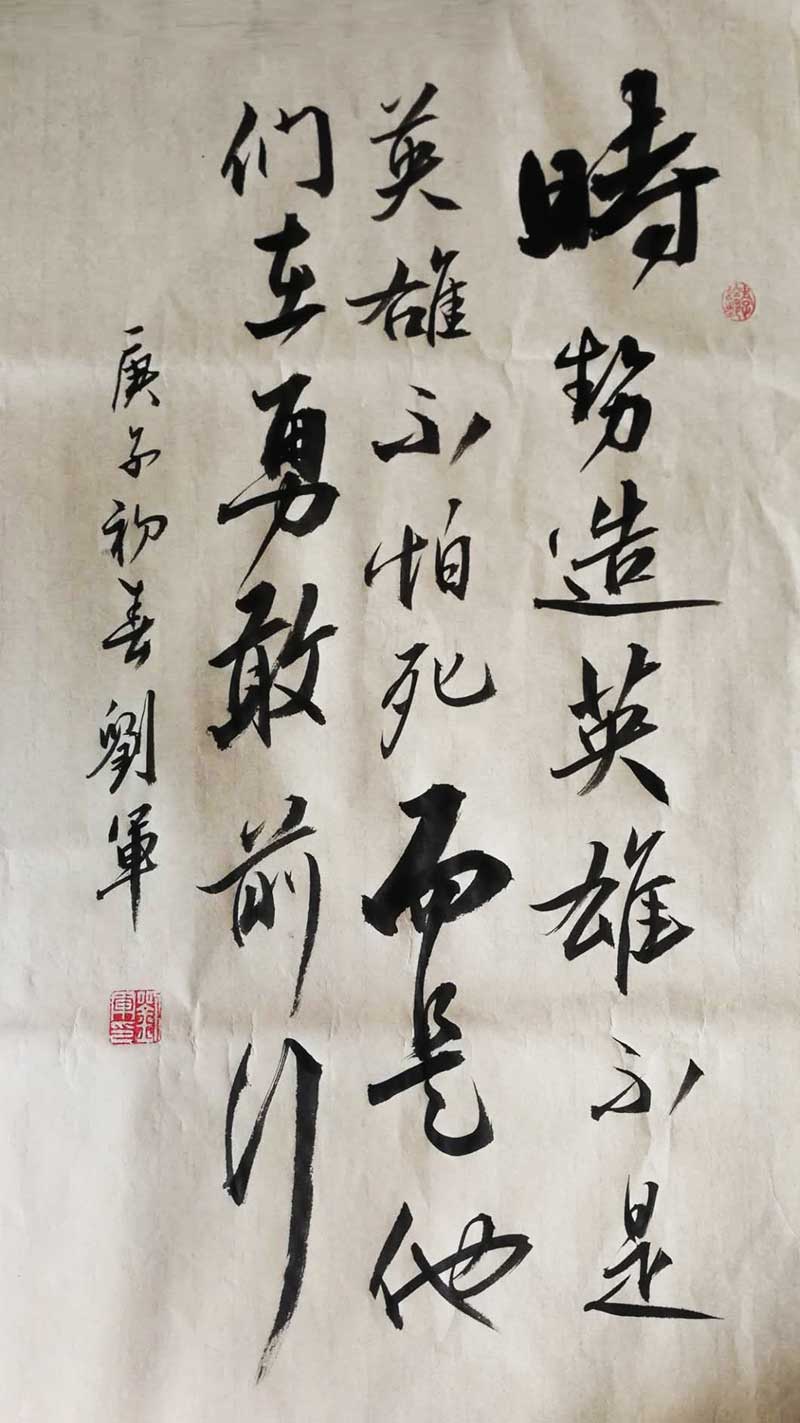 時勢造英雄不是
英雄不怕死而是他
们在勇敢前行
庚子初春劉軍
劉軍印